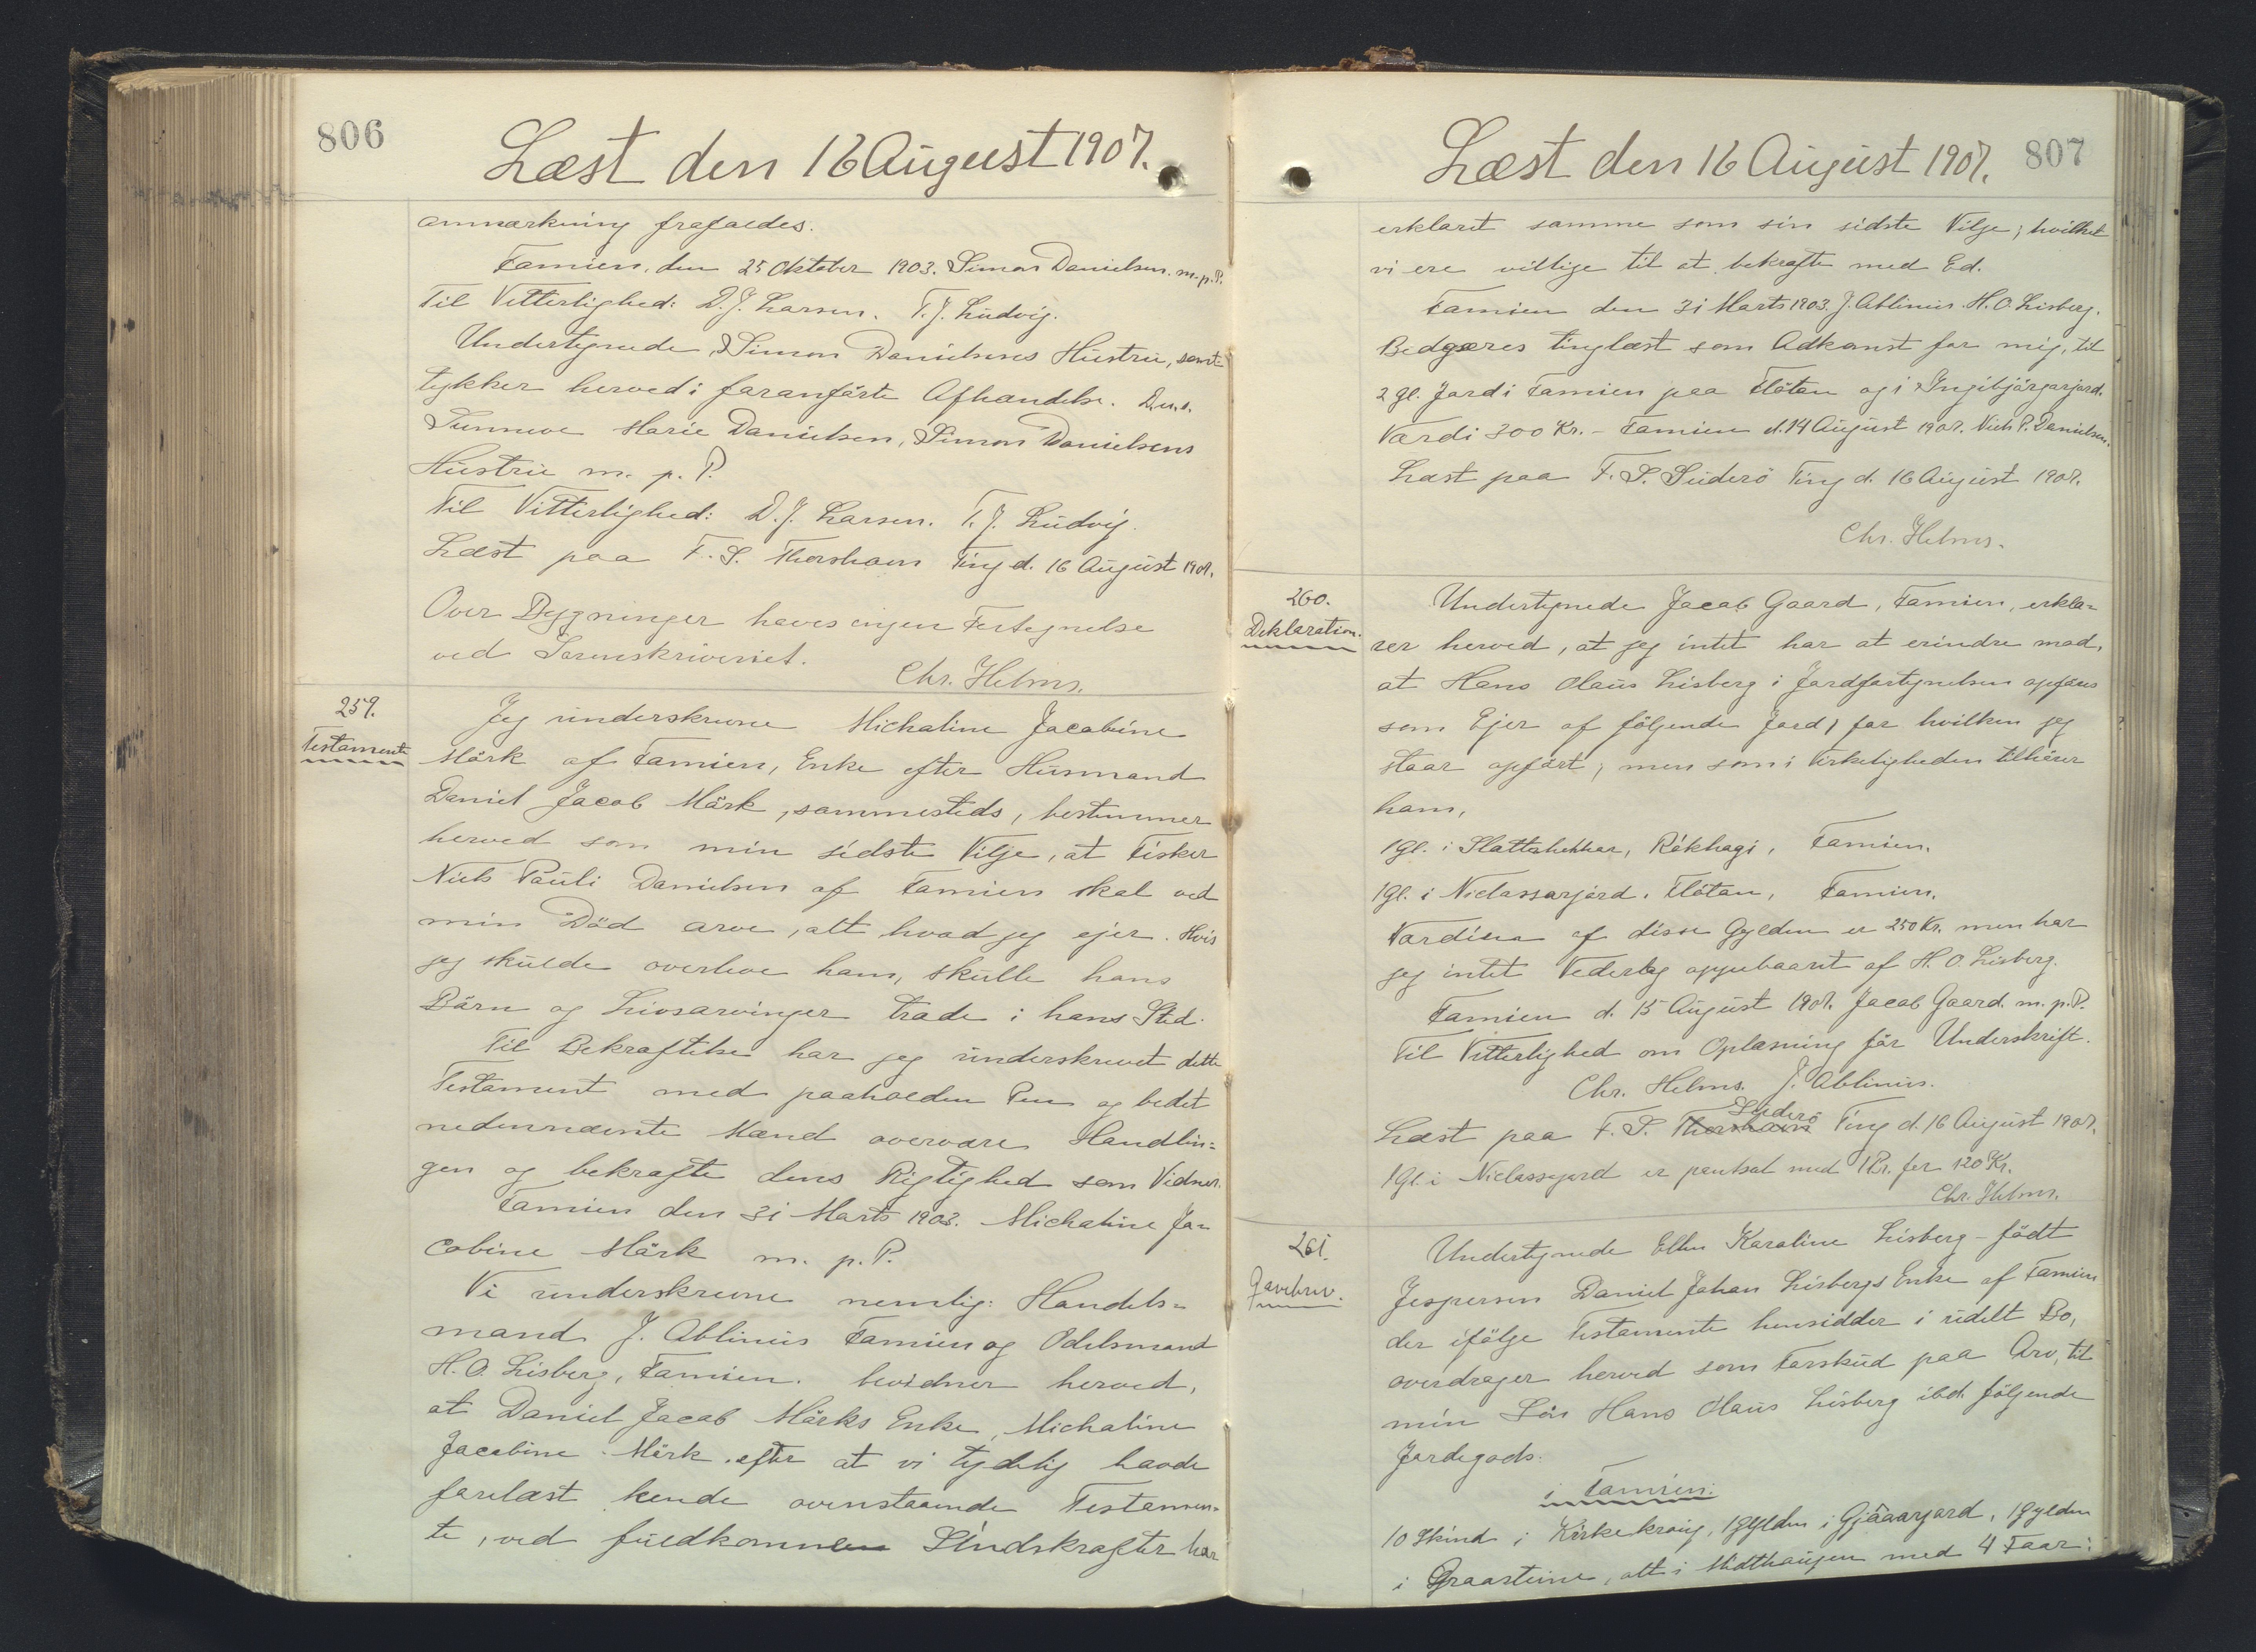 806
Læst den 16 August 1907.
anmærkning frafaldes.
Famien, den 25 Oktober 1903. Simon Danielsen. m.p.P.
Til Vitterlighed: D.J. Larsen. T.J. Ludvig.
Undertegnede, Simon Danielsens Hustru, sam-
tykker herved i foranførte Afhændelse. D.u.s.
Sunneve Marie Danielsen, Simon Danielsens
Hustru m. p. P.
Til Vitterlighed: D.J. Larsen. T.J. Ludvig.
Læst paa F. S. Thorshavn Ting d. 16 August 1907.
Over Bygninger haves ingen Fortegnelse
ved Sorenskriveriet.
Chr. Helms.
259.
Testamente
Jeg underskrevne Michaline Jacobine
Mörk af Famien, Enke efter Husmand
Daniel Jacob Mörk, sammesteds, bestemmer
herved som min sidste Vilje, at Fisker
Niels Pauli Danielsen af Famien skal ved
min Död arve, alt hvad jeg ejer. Hvis
jeg skulde overleve ham, skulle hans
Börn og Livsarvinger træde i hans Sted.
Til Bekræftelse har jeg underskrevet dette
Testament med paaholden Pen og bedet
nedennævnte Mænd overvære Handlin=
gen og bekræfte dens Rigtighed som Vidner.
Famien den 31 Marts 1903. Michaline Ja=
cobine Mörk m. p. P.
Vi underskrevne nemlig: Handels=
mand J. Ablinius Famien og Odelsmand
H.O. Lisberg, Famien. bevidner herved,
at Daniel Jacob Mörks Enke, Michaline
Jacobine Mörk, efter at vi tydelig havde
forelæst hende ovenstaaende Testamen=
te, ved fuldkomne Sindskræfter har
Læst den 16 August 1907.
807
erklæret samme som sin sidste Vilje; hvilket
vi ere villige til at bekræfte med Ed.
Famien den 31 Marts 1903. J. Ablinius. H.O. Lisberg.
Bedgæres tinglæst som Adkomst for mig, til
2 gl. Jord i Famien paa Flötan og i Ingibjörgarjord.
Værdi 300 Kr. - Famien d. 14 August 1907. Niels P. Danielsen.
Læst paa F. S. Suderö Ting d. 16 August 1907.
Chr. Helms.
260.
Deklaration.
Undertegnede Jacob Gaard, Famien, erklæ=
rer herved, at jeg intet har at erindre mod,
at Hans Olaus Lisberg i Jordfortegnelsen opføres
som Ejer af følgende Jord, for hvilken jeg
staar opført; men som i Virkeligheden tilhører
ham,
1 gl. i Slattabekkar, Rókhagi, Famien.
1 gl. i Niclassarjørd. Flötan, Famien.
Værdien af disse Gylden er 250 Kr. men har
jeg intet Vederlag oppebaaret af H. O. Lisberg.
Famien d. 15 August 1907. Jacob Gaard. m. p. P.
Til Vitterlighed om Oplæsning før Underskrift.
Chr. Helms. J. Ablinius.
Suderö
Læst paa F. S. Thorshavn Ting d. 16 August 1907.
1 Gl. i Niclassejord er pantsat med 1 Pr. for 120 Kr.
Chr. Helms.
261.
Gavebrev.
Undertegnede Ellen Karoline Lisberg - født
Jespersen Daniel Johan Lisbergs Enke af Famien
der ifølge Testamente hensidder i udelt Bo,
overdrager herved som Forskud paa Arv, til
min Søn Hans Olaus Lisberg ibd. følgende
Jordegods:
i Famien:
10 Skind i Kirkekraug, 1 gylden i Gjáarjord, 1 gylden
i Graasteine, alt i Midthaugen med 4 Faar: